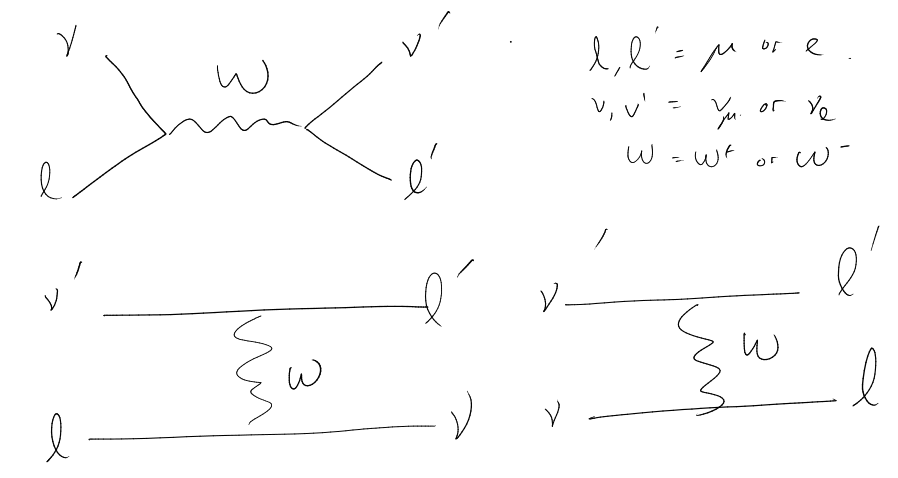 ν ν′
W
l l′
l, l′ = μ or e.
ν, ν′ = ν_μ or ν_e
W = W⁺ or W⁻
ν′ l′
W
l ν
ν′ l′
W
ν l